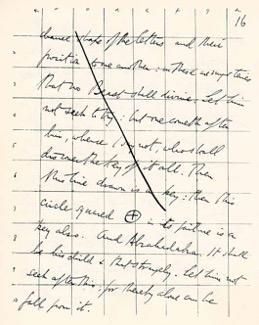 16
chance shape of the letters and their
position to one another: in these are mysteries
that no Beast shall divine. Let him
not seek to try: but one cometh after
him, whence I say not, who shall
discover the Key of it all. Then
this line drawn is a key: then this
circle squared in its failure is a
key also. And Abrahadabra. It shall
be his child & that strangely. Let him not
seek after this: for thereby alone can he
fall from it.